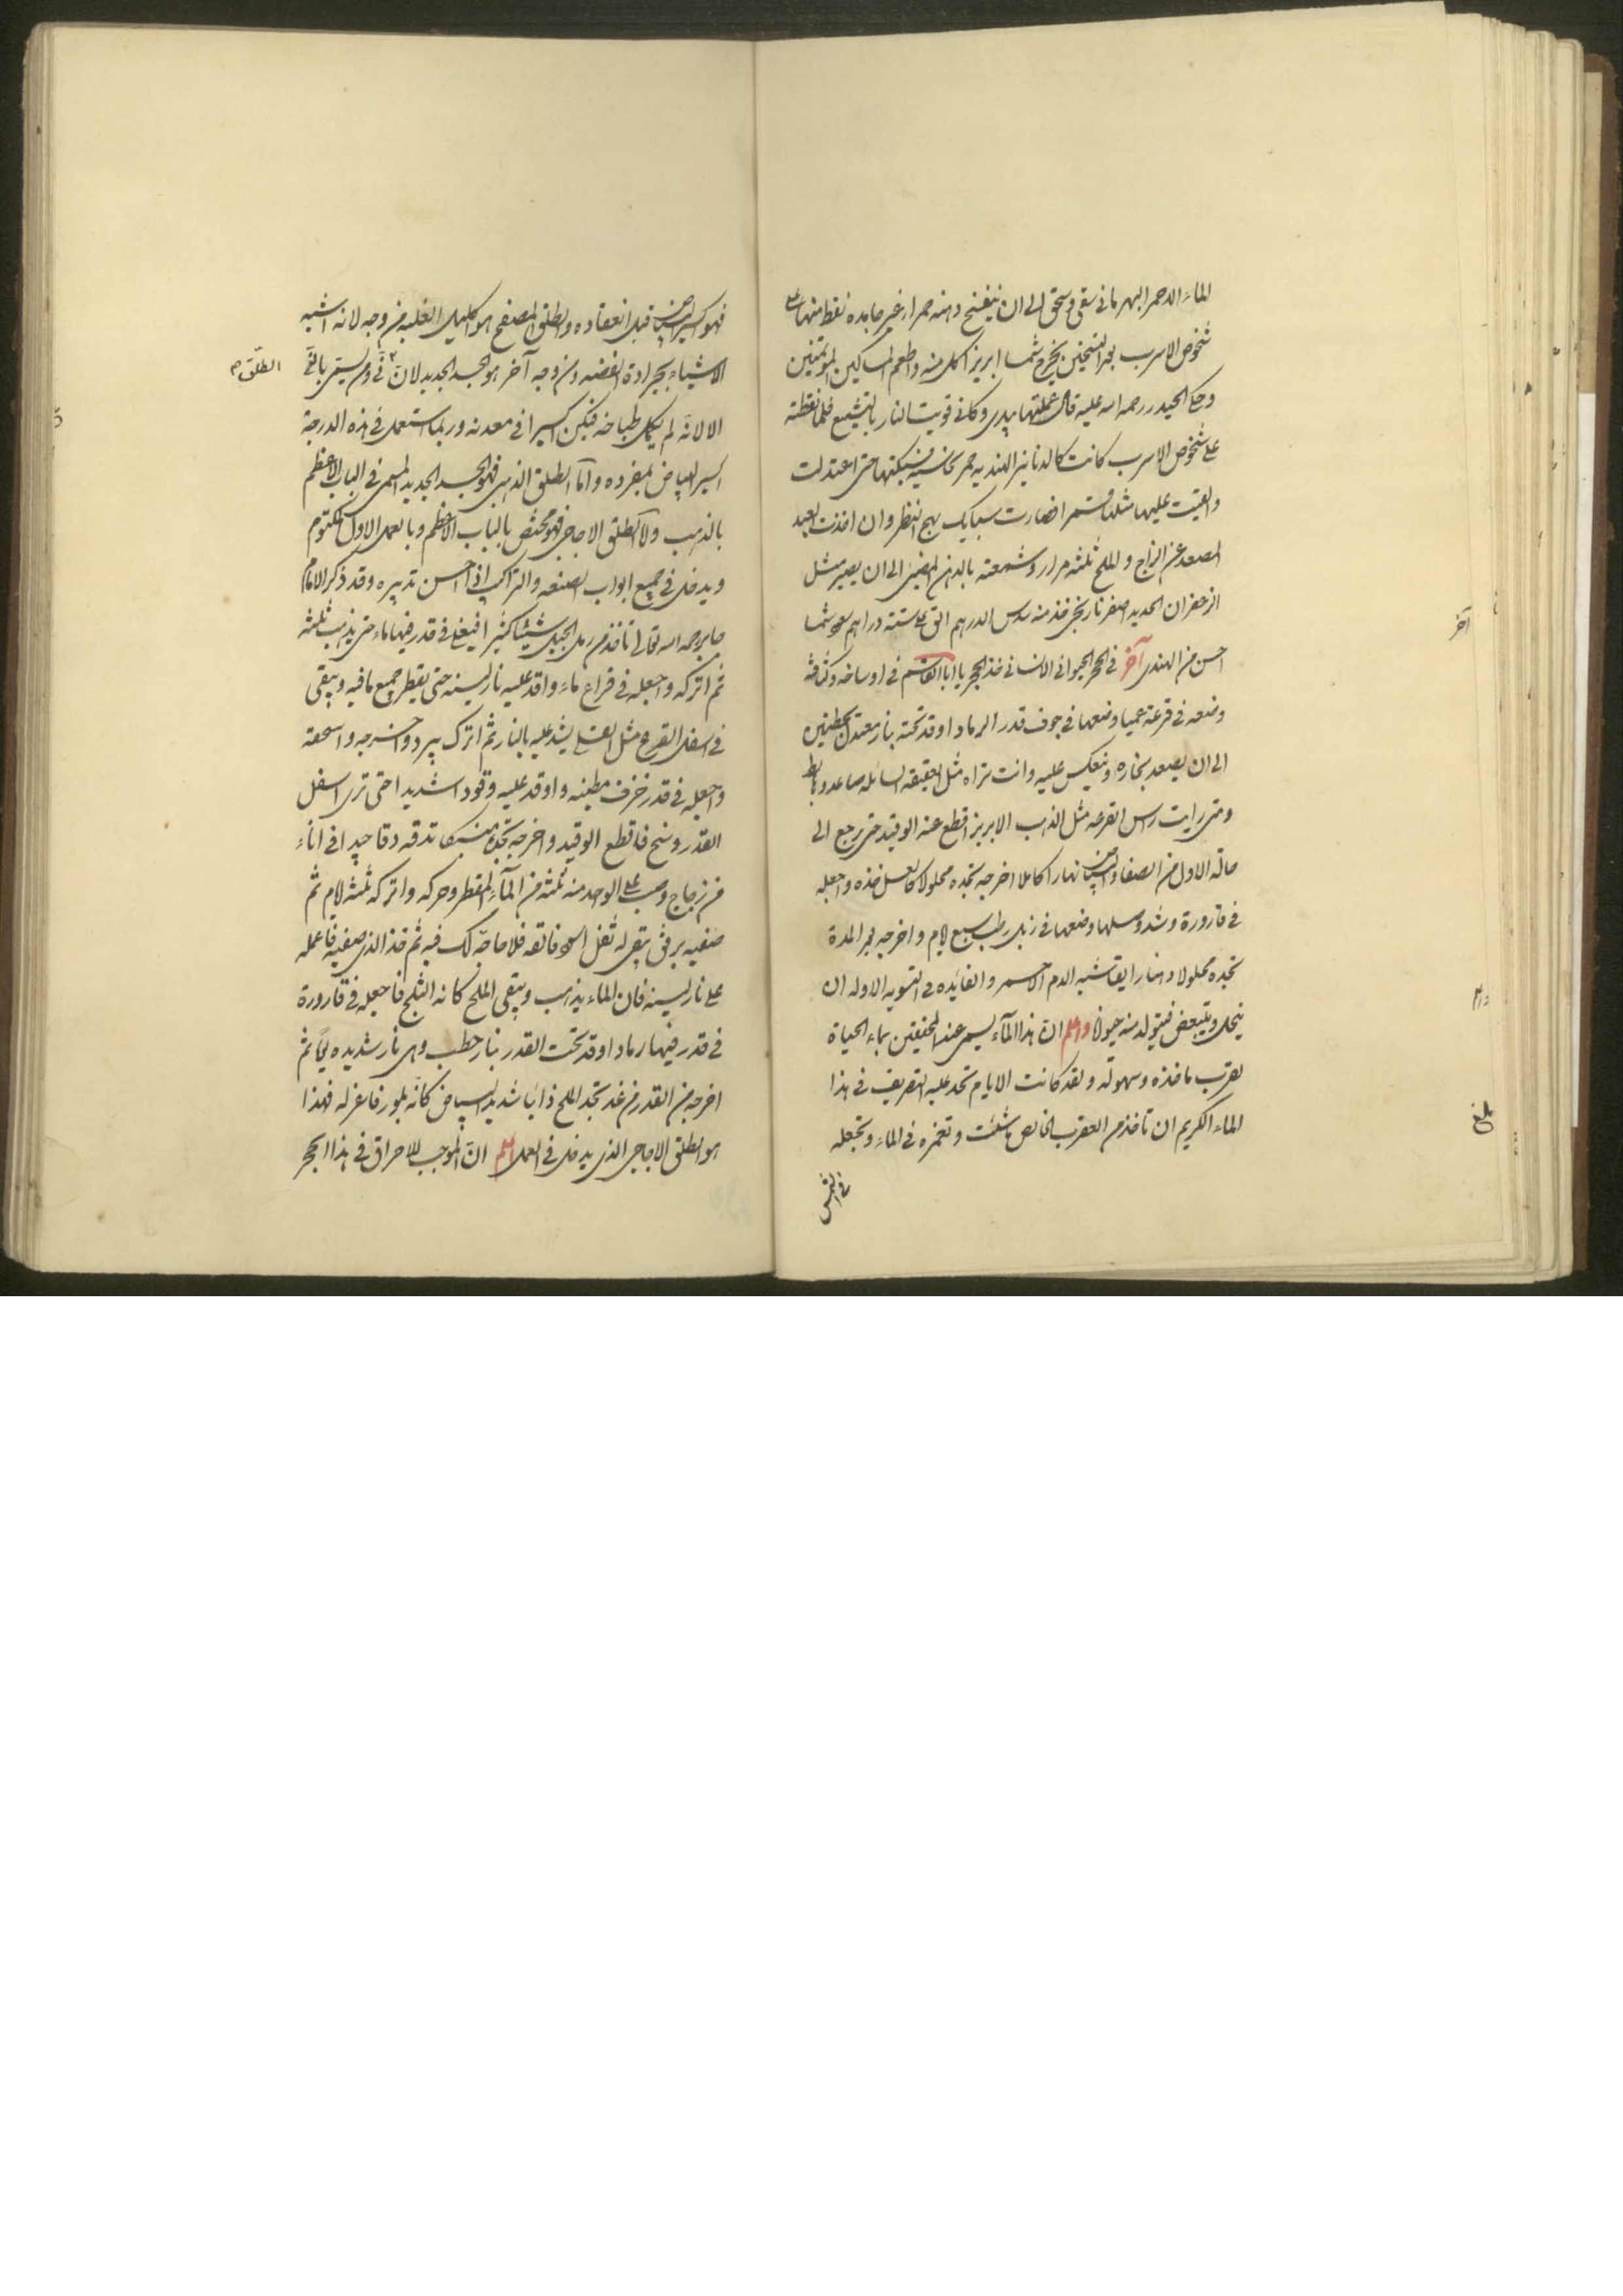 الماء الاحمر البهرمانی یسقی ویسحق الی ان ینفسخ دهنه حمرا غیر جامده نقط منها علی
شخوص الاسرب بعد التسخین یخرج شمسا ابریز اکل منه واطعم المساکین المؤمنین
وحکی الحیدر رحمه اسه علیه قال عملتها بیدی وکانی قویت النار بالتشمیع فلما نقطته
علی شخوص الاسرب کانت کالدنانیر الهندیه حمر نحاسیه فسبکتها حتی اعتدلت
والقیت علیها مثلها قمر افصارت سبایک بهج النظر وان اخذت العبد
المصعد عن الزاج والملح ثلثه مرار وشمعته بالدهن المضی الی ان یصیر مثل
الزعفران الحدید اصفر نارنجی خذ منه سدس الدرهم الق علی سته دراهم شمسا
احسن من الهندی آخر فی الحجر الحیوانی الانسانی خذ الحجر یا ابا القاسم فی اوساخه وکثافته
وضعه فی قرعة عمیا وضعها فی جوف قدر الرماد اوقد تحته بنار معتدل
الی ان یصعد بخاره وینعکس علیه وانت تراه مثل العقیقه السائله صاعد وهابط
ومتی رایت راس القرعه مثل الذهب الابریز اقطع عنه الوقید حتی یرجع الی
حاله الاول من الصفا والبیاض نهارا کاملا اخرجه تجده محلولا کالعسل خذه واجعله
فی قارورة وشد وسلها وضعها فی زبل رطب سبع ایام واخرجه بعد المدة
تجده محلولا دهنا رایقا شبه الدم الاحمر والفایده فی التسویه الاوله ان
ینحل ویتبعض فیتولد منه حیوانا واعلم ان هذا المآء یسمی عند المحققین بماء الحیاة
لقرب ماخذه وسهولته ولقد کانت الایام تحد علیه التصریف فی هذا
الماء الکریم ان تاخذ من العقرب الخالص ما شئت وتغمره فی الماء وتجعله
فی الشمس
آخر
بلغ
فهو اکسیر البیاض قبل انعقاده والطلق المصفح هو اکلیل الغلبه من وجه لانه اشبه
الاشیاء ببرادة الفضه ومن وجه آخر هو الجسد الجدید لان
الطلق
الا لانه لم یکمل طباخه فیکون اکسیرا فی معدنه وربما استعمل فی هذه الدرجة
اکسیر البیاض بمفرده واما الطلق الذهبی فهو الجسد الجدید المسمی فی الباب الاعظم
بالذهب واما الطلق الاجاجی فهو مختص بالباب الاعظم وبالعمل الاول المکتوم
ویدخل فی جمیع ابواب الصنعه والتراکیب اذا احسن تدبیره وقد ذکر الامام
جابر رحمه اسه تعالی تاخذ من رمل الجبل شیئا کثیرا فیغلی فی قدر فیها ماء حتی یذهب ثلثه
ثم اترکه واجعله فی قراع ماء واقد علیه نار لینه حتی یقطر جمیع ما فیه ویبقی
فی اسفل القرع مثل العسل شد علیه بالنار ثم اترک یبرد واخرجه واسحقه
واجعله فی قدر خزف مطینه واوقد علیه وقودا شدیدا حتی تری اسفل
القدر وسخ فاقطع الوقید واخرجه تجده منسبکا تدقه دقا جیدا فی اناء
من زجاج وصب علی الواحد منه ثلثه من المآء المقطر وحرکه واترکه ثلثه ایام ثم
صفیه برفق یبقی له ثفل اسود فالقه فلا حاجة لک فیه ثم خذ الذی صفیته فاعمله
علی نار لینه فان الماء یذهب ویبقی الملح کانه الثلج فاجعله فی قارورة
فی قدر فیها رماد اوقد تحت القدر بنار حطب وهی نار شدیده یوما ثم
اخرجه من القدر من غد تجد الملح ذائبا شدید البیاض کانه بلور فاعزله فهذا
هو الطلق الاجاجی الذی یدخل فی العمل اعلم ان الموجب للاحراق فی هذا الحجر